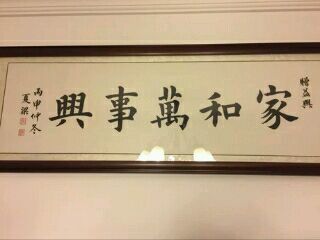 贈益興
家和萬事興
丙申仲冬
夏梁